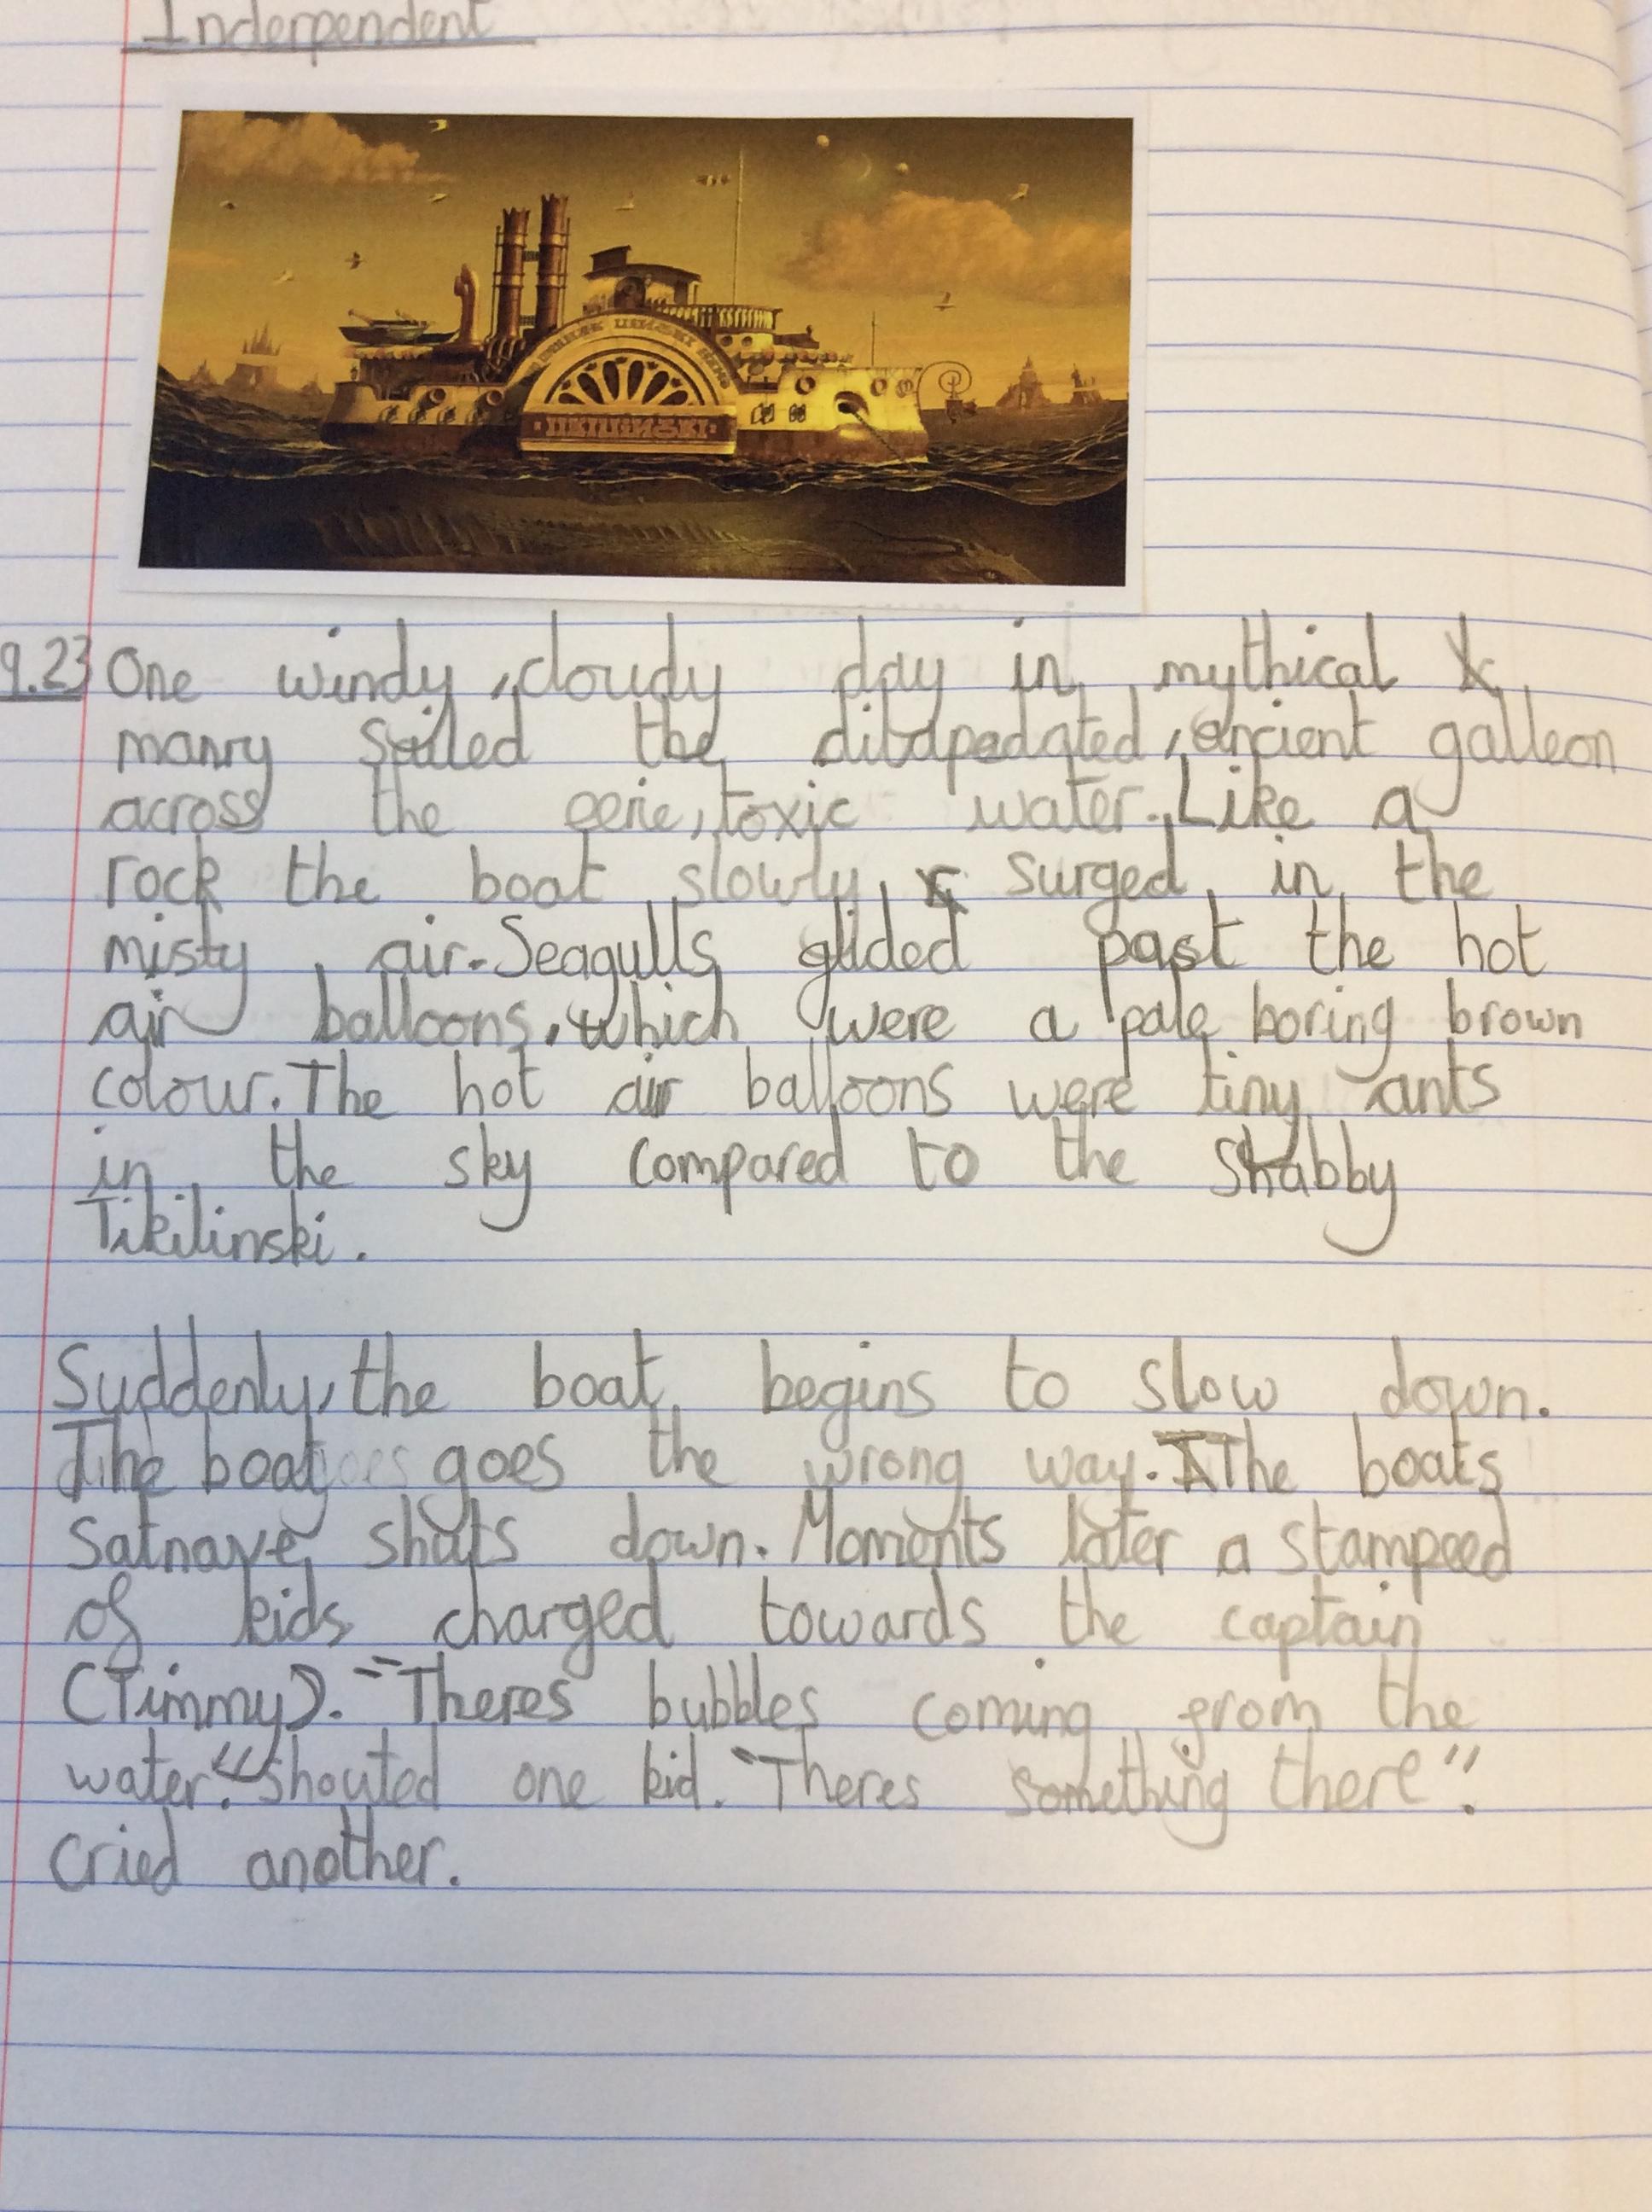 Inderpendent
9.23 One windy, cloudy day in mythical
manry sailed the dilapedated, ancient galleon
across the eerie, toxic water. Like a
rock the boat slowly surged in the
misty air. Seagulls glided past the hot
air balloons, which were a pale boring brown
colour. The hot air balloons were tiny ants
in the sky compared to the shabby
Tikilinski.
Suddenly, the boat begins to slow down.
The boat goes the wrong way. The boats
satnave shuts down. Moments later a stampeed
of kids charged towards the captain
(Timmy). "Theres bubbles coming from the
water." shouted one kid. "Theres something there".
cried another.